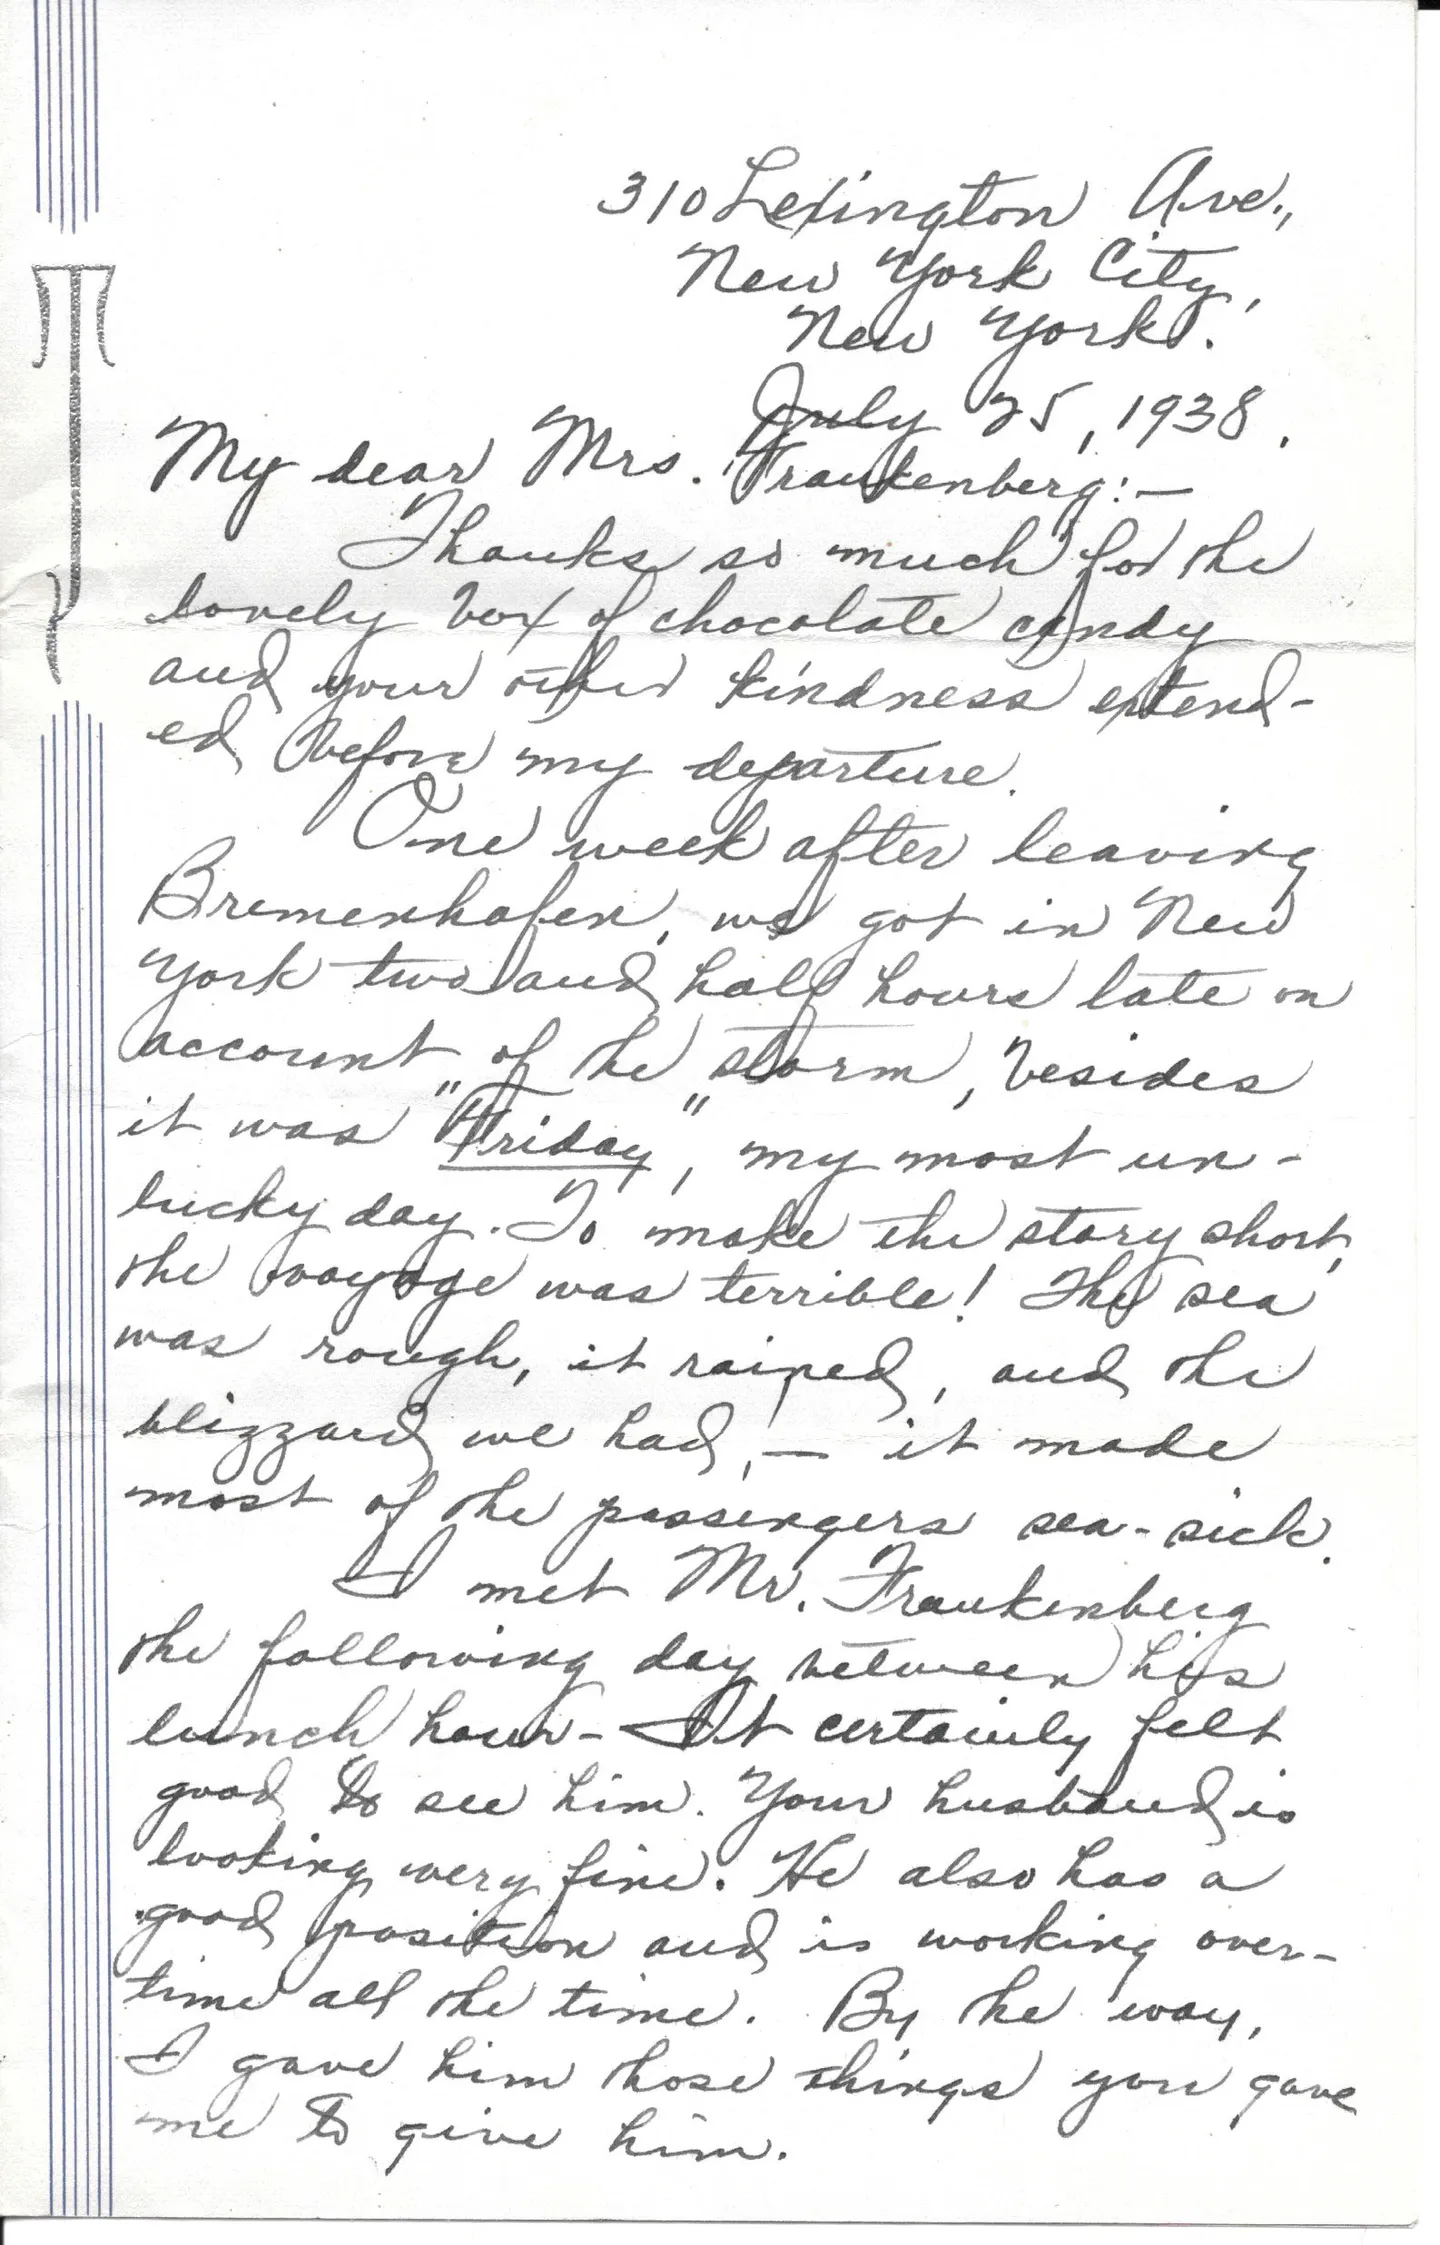 310 Lexington Ave.,
New York City,
New York.
July 25, 1938.
My dear Mrs. Frankenberg:—
Thanks so much for the
lovely box of chocolate candy
and your other kindness extend-
ed before my departure.
One week after leaving
Bremenhafen, we got in New
York two and half hours late on
account of the storm, besides
it was "Friday", my most un-
lucky day. To make the story short,
the voyage was terrible! The sea
was rough, it rained, and the
blizzard we had, — it made
most of the passengers sea-sick.
I met Mr. Frankenberg
the following day between his
lunch hour - It certainly felt
good to see him. Your husband is
looking very fine. He also has a
good position and is working over-
time all the time. By the way,
I gave him those things you gave
me to give him.